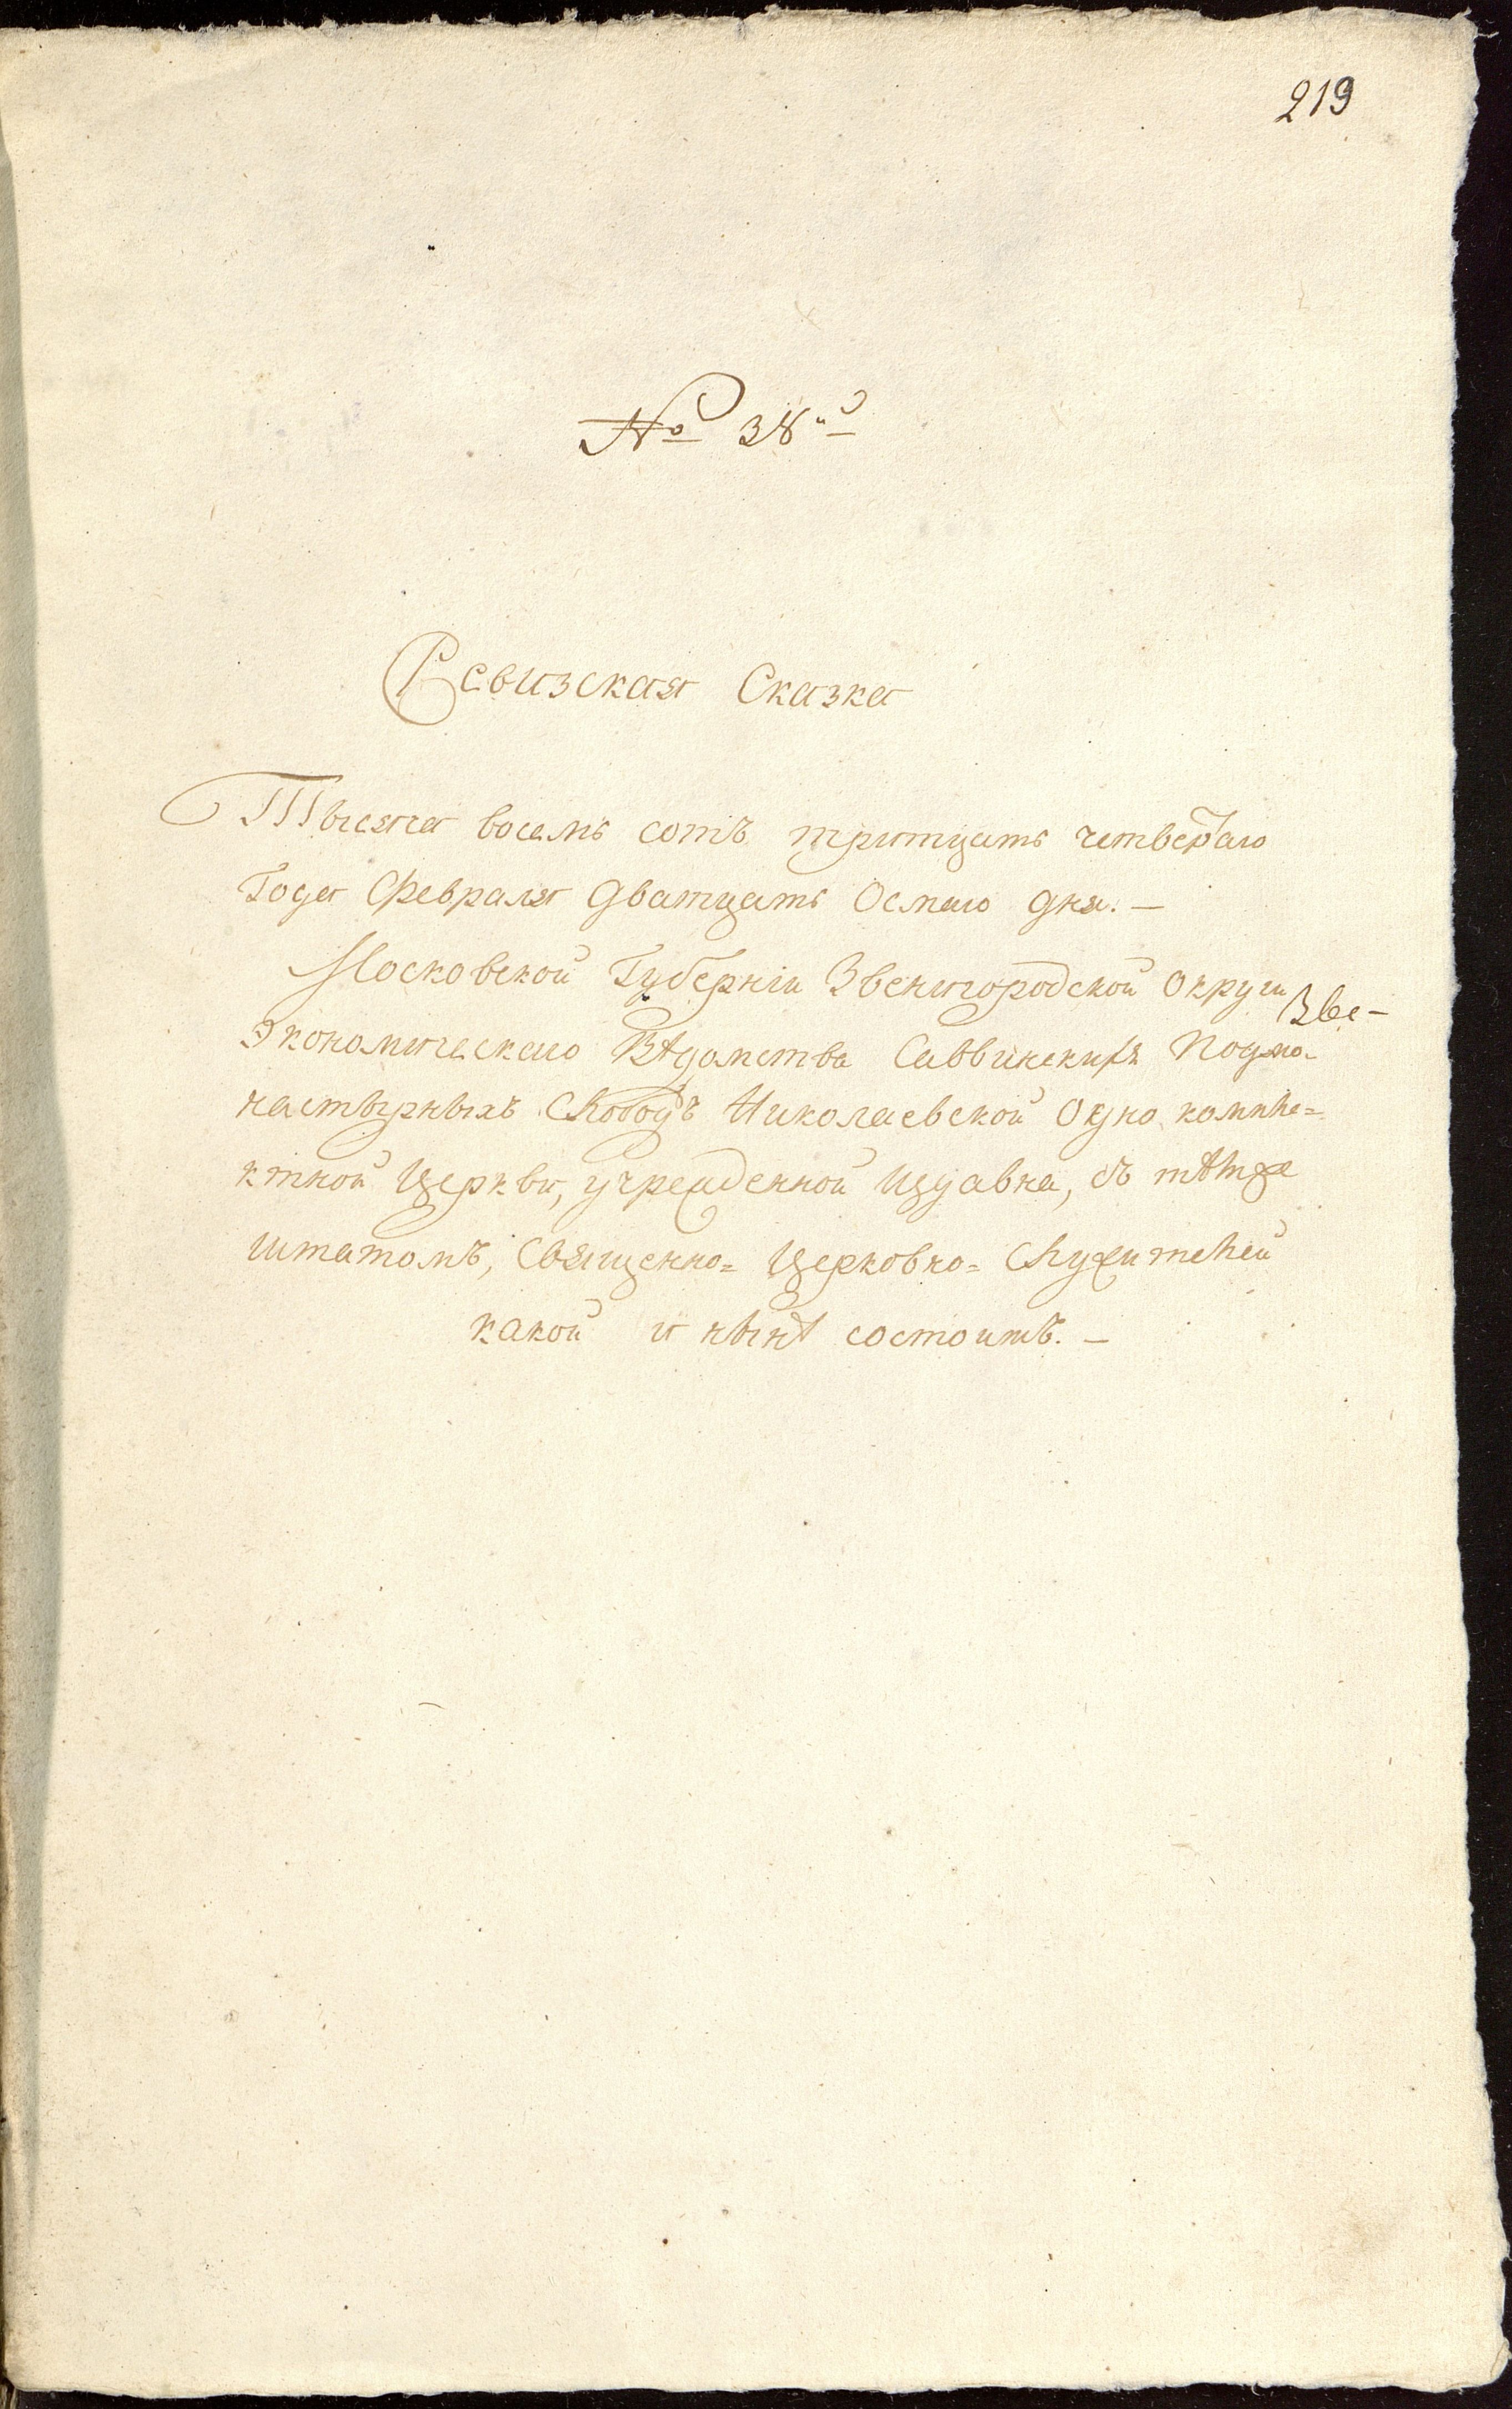 219
№ 38й
Ревизская Сказка
Тысяча восемь сотъ тритцать четвертаго
Года Февраля дватцать Осмаго дня. —
Московской Губернiи Звенигородской Округи
Зве-
Экономическаго Вѣдомства Саввинскихъ Подмо-
настырныхъ Слободъ Николаевской Одно компле=
ктной Церкви, учрежденной издавна, съ тѣмже
штатомъ, Священно= Церковно= Служителей
какой и нынѣ состоитъ. —